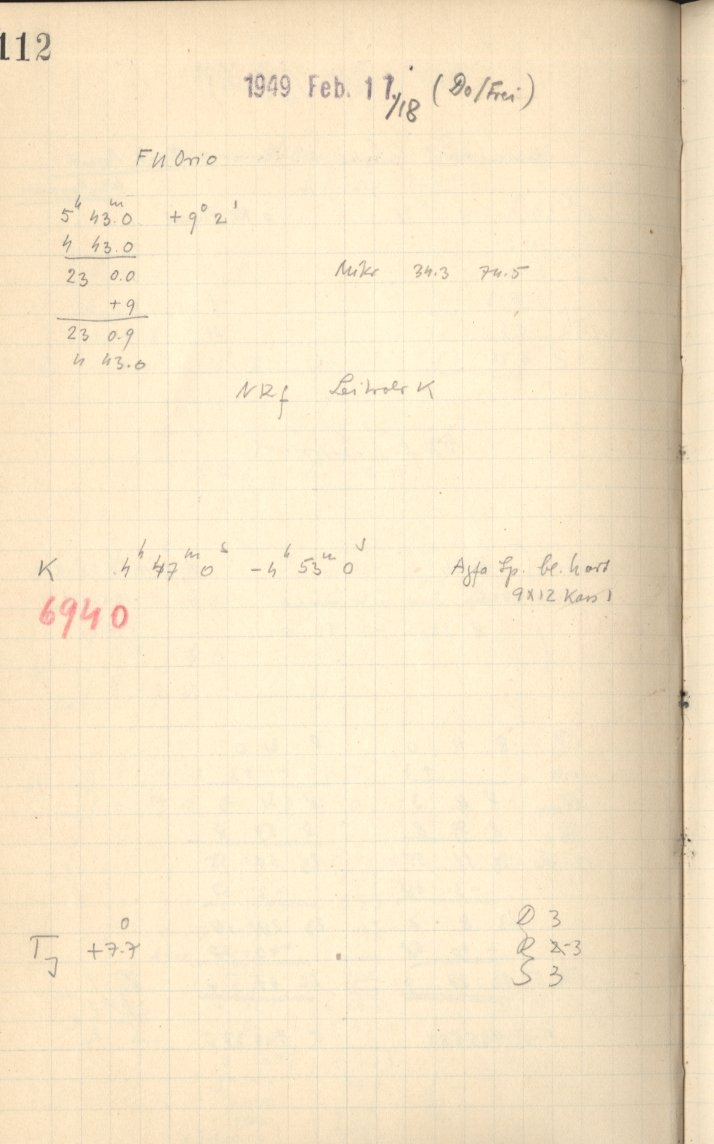 112
1949 Feb. 17./18 (Do/Frei)
FU Orio
5h 43.m0 +9° 2'
4 43.0
23 0.0
+9
23 0.9
4 43.0
Mikr 34.3 74.5
NRf Leitrohr K
K 4h 47m 0s - 4h 53m 0s Agfa Sp. bl. hart
9x12
6940
TJ +7.°7
D 3
R 2-3
S 3